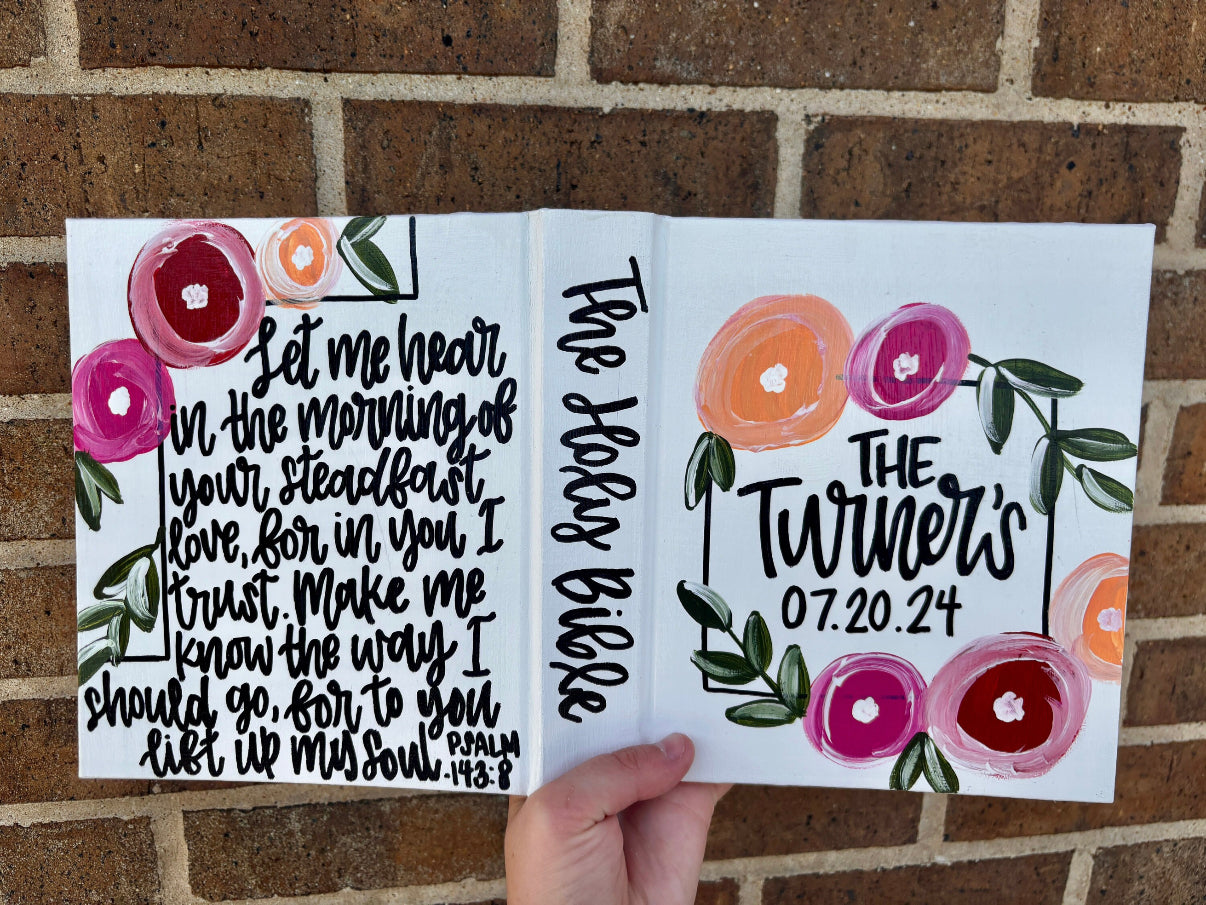 Let me hear
in the morning of
your steadfast
love, for in you I
trust. Make me
know the way I
should go, for to you
lift up my soul.
PSALM
143:8
The Holy Bible
THE
Turner's
07.20.24